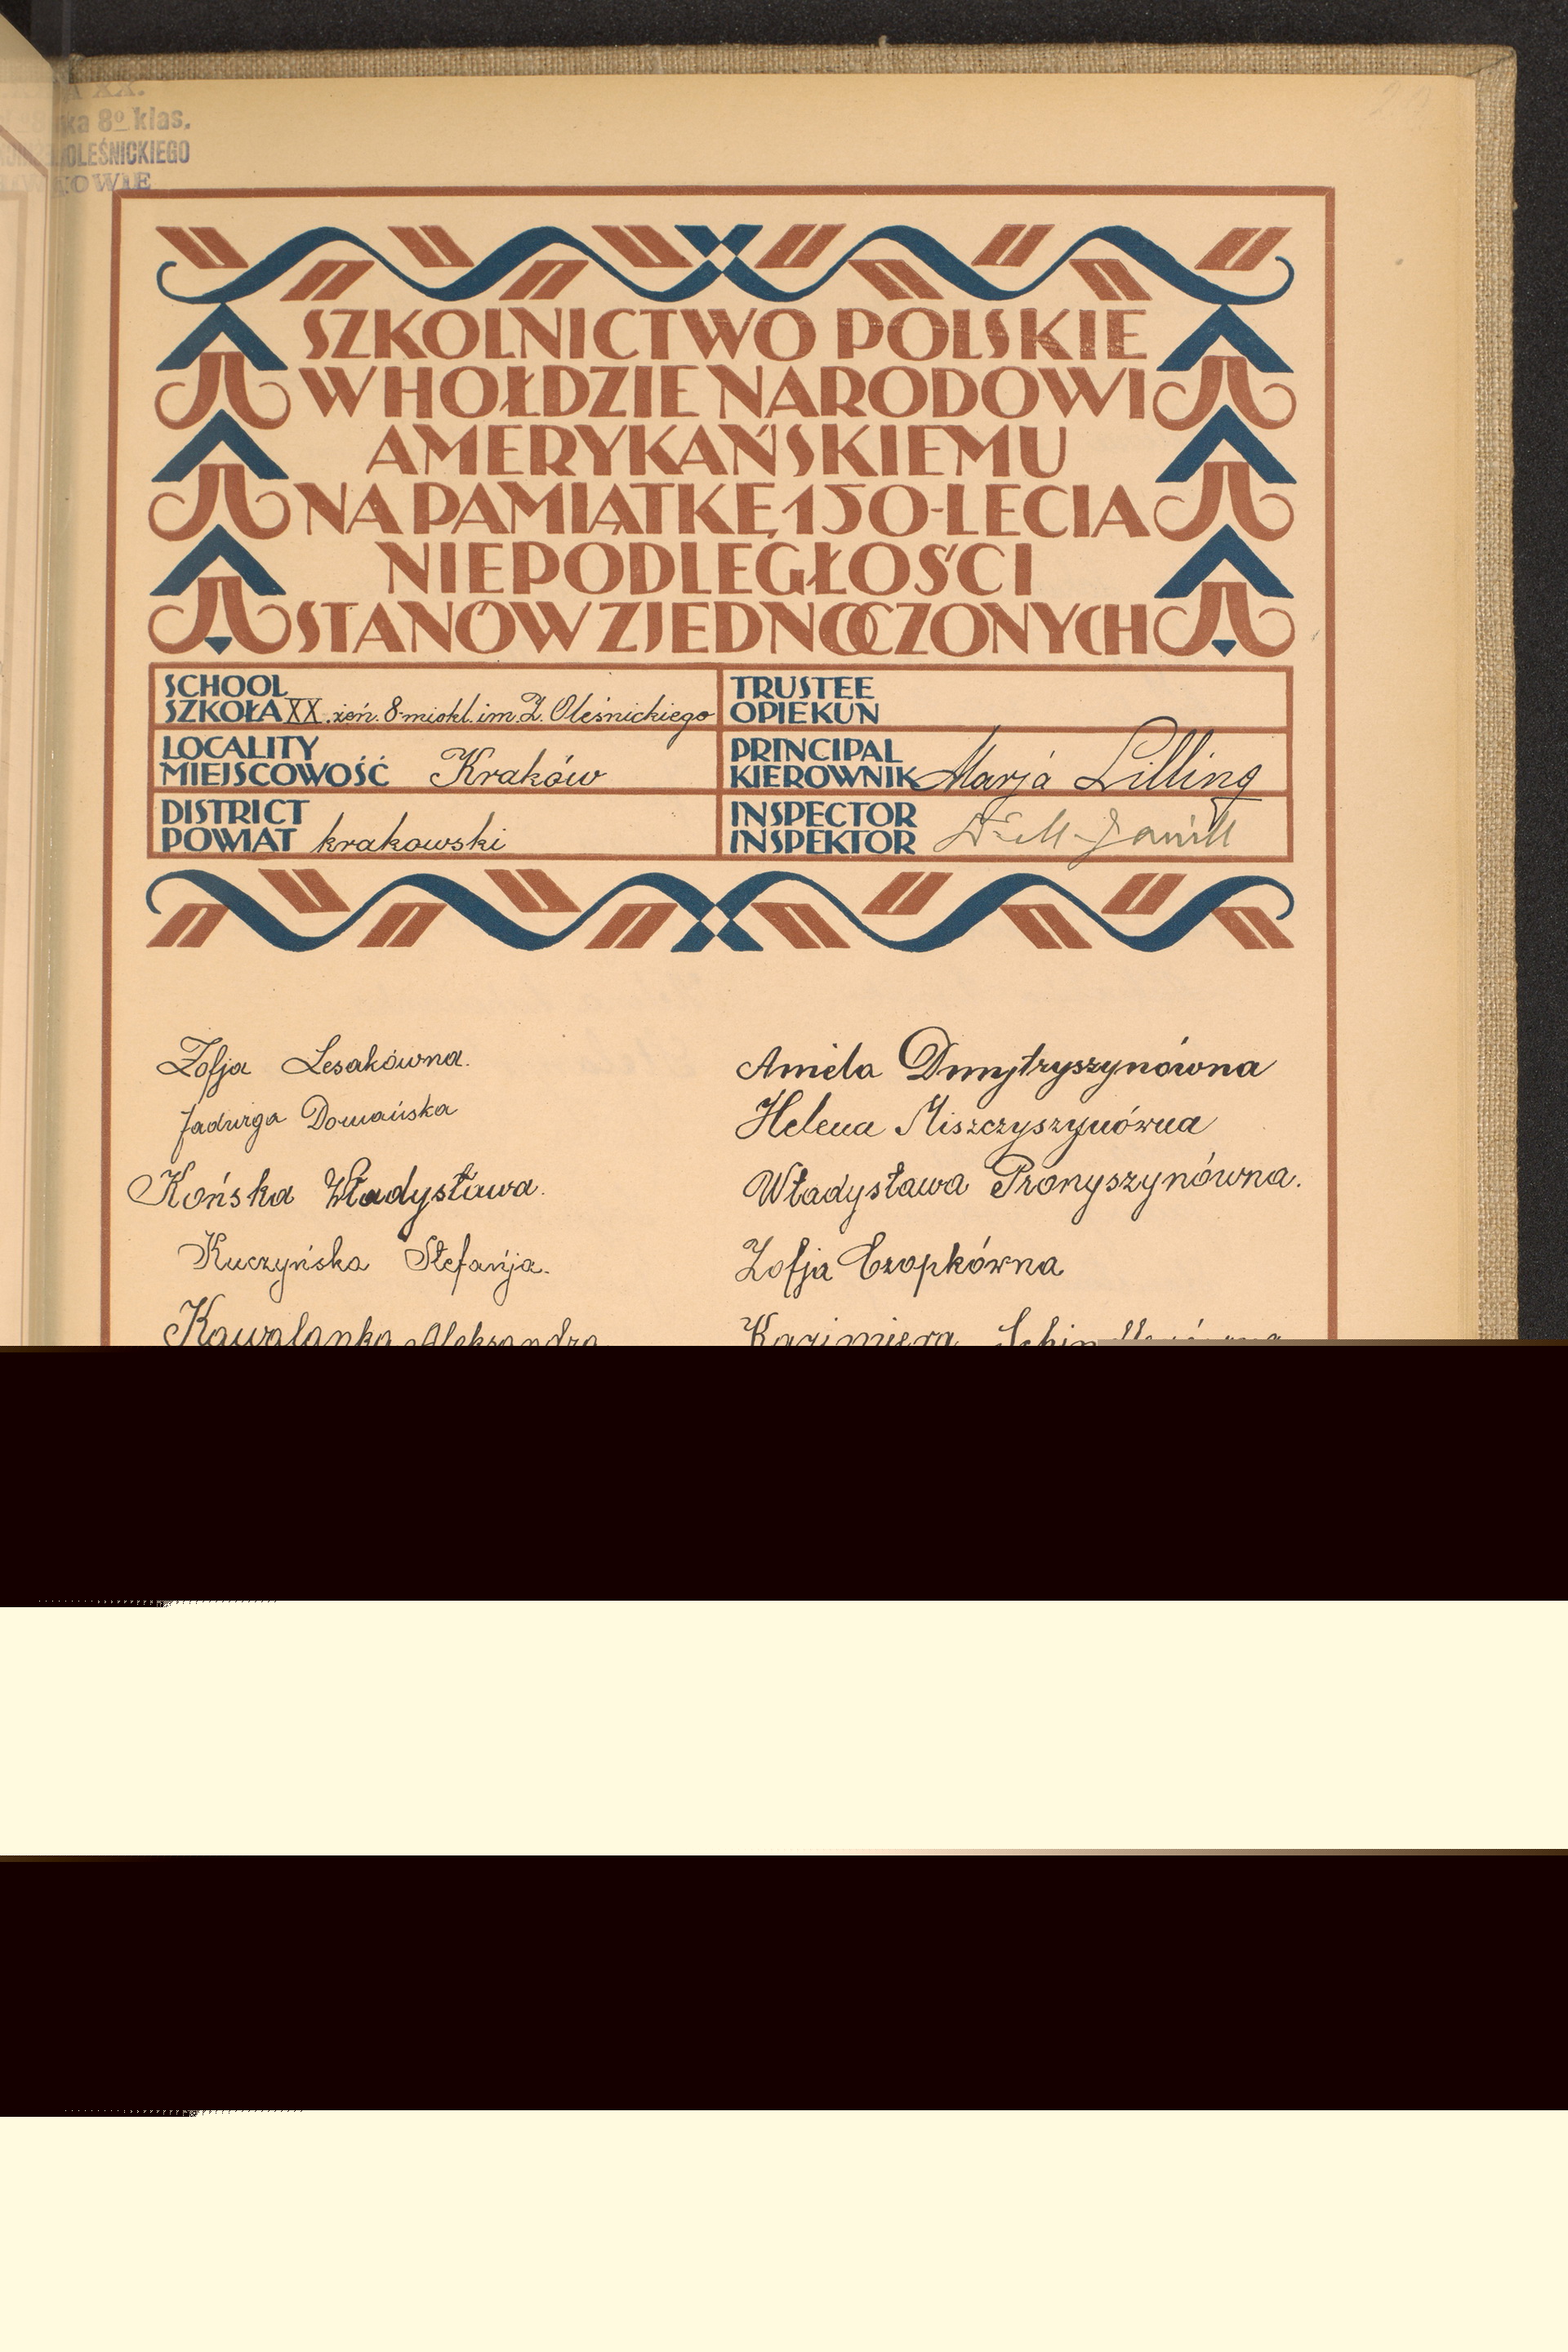 XX.
ka 8º klas.
OLEŚNICKIEGO
KOWIE
SZKOLNICTWO POLSKIE
W HOŁDZIE NARODOWI
AMERYKAŃSKIEMU
NA PAMIĄTKĘ 150-LECIA
NIEPODLEGŁOŚCI
STANÓW ZJEDNOCZONYCH
SCHOOL
SZKOŁA XX. żeń. 8-miokl. im. Z. Oleśnickiego
LOCALITY
MIEJSCOWOŚĆ Kraków
DISTRICT
POWIAT krakowski
TRUSTEE
OPIEKUN
PRINCIPAL
KIEROWNIK Marja Lilling
INSPECTOR
INSPEKTOR
Zofja Lesakówna.
Jadwiga Domańska
Końska Władysława.
Kuczyńska Stefanja.
Kawalanka Aleksandra
Amiela Dmytryszynówna
Helena Miszczyszynówna
Władysława Pronyszynówna.
Zofja Czopkówna
Kazimiera